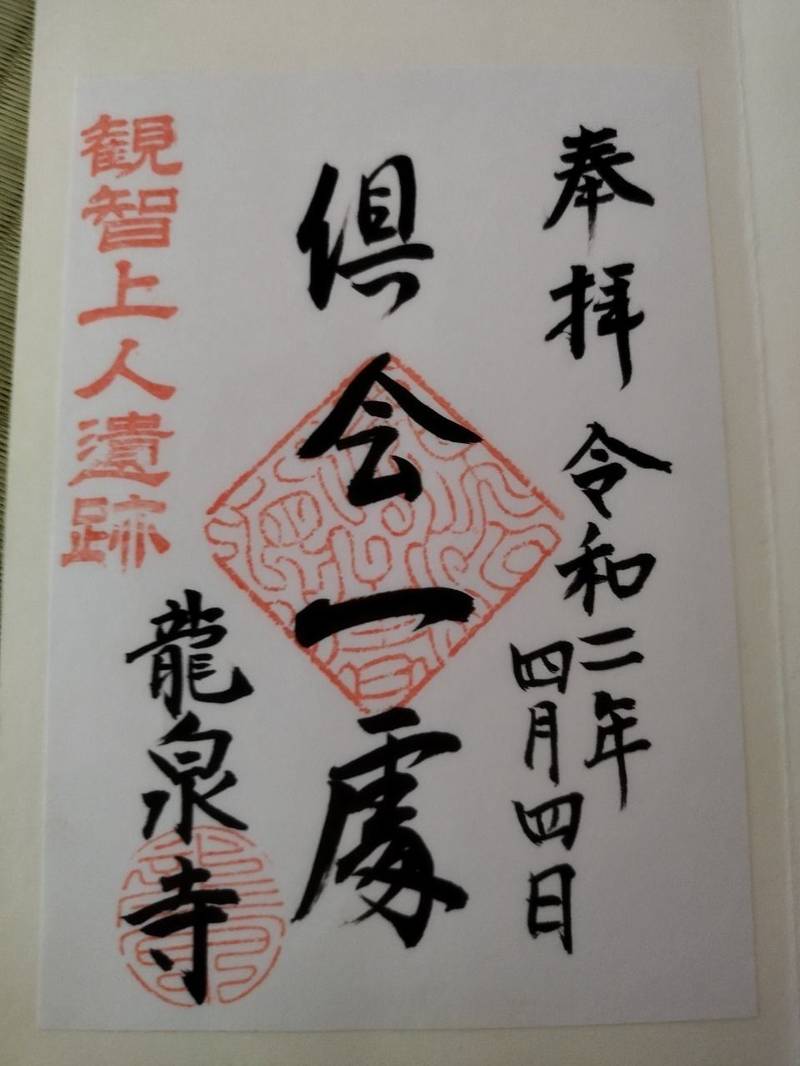 奉拝 令和二年
四月四日
倶会一處
観智上人遺跡
龍泉寺